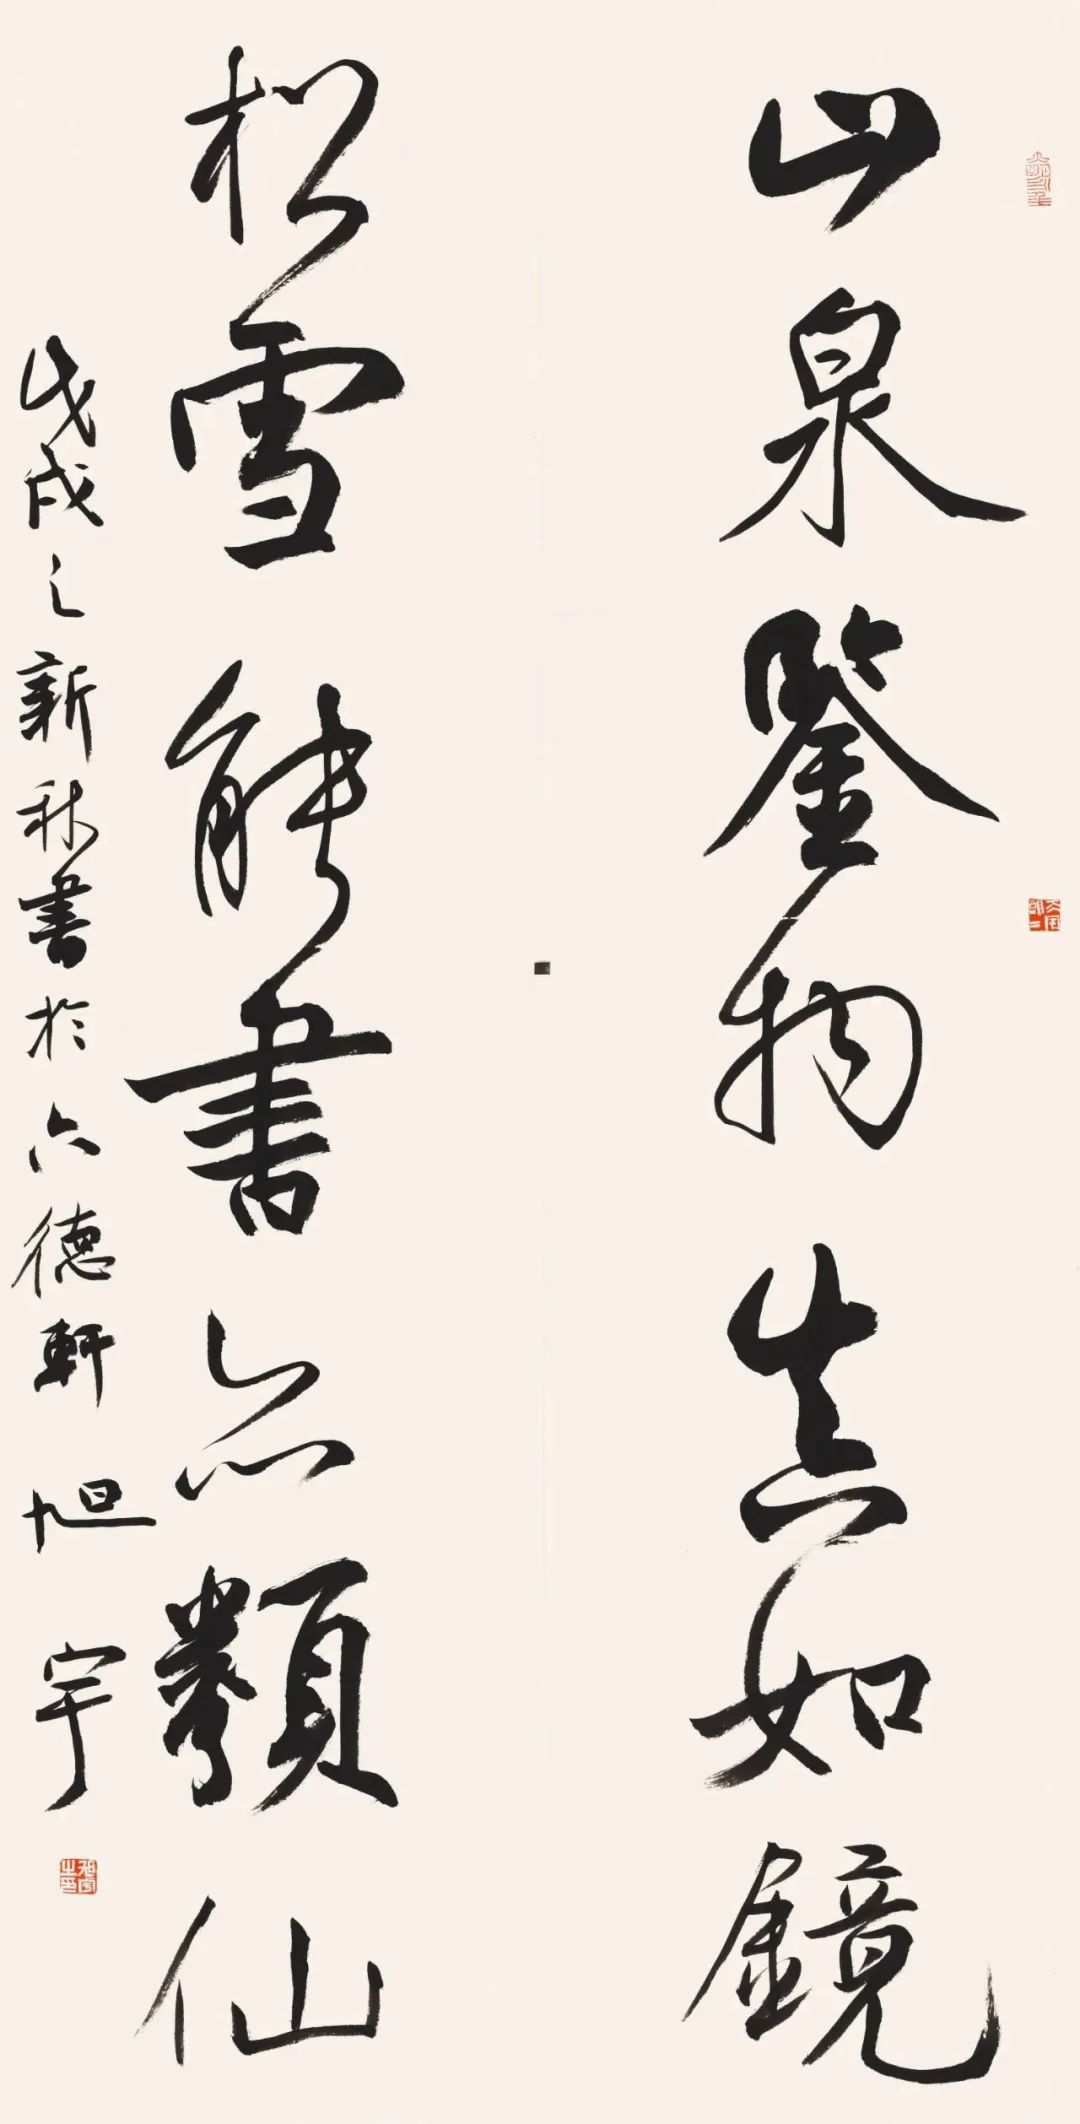 山泉鑒物真如鏡
松雪能書亦類仙
戊戌之新秋書於六德軒 旭宇